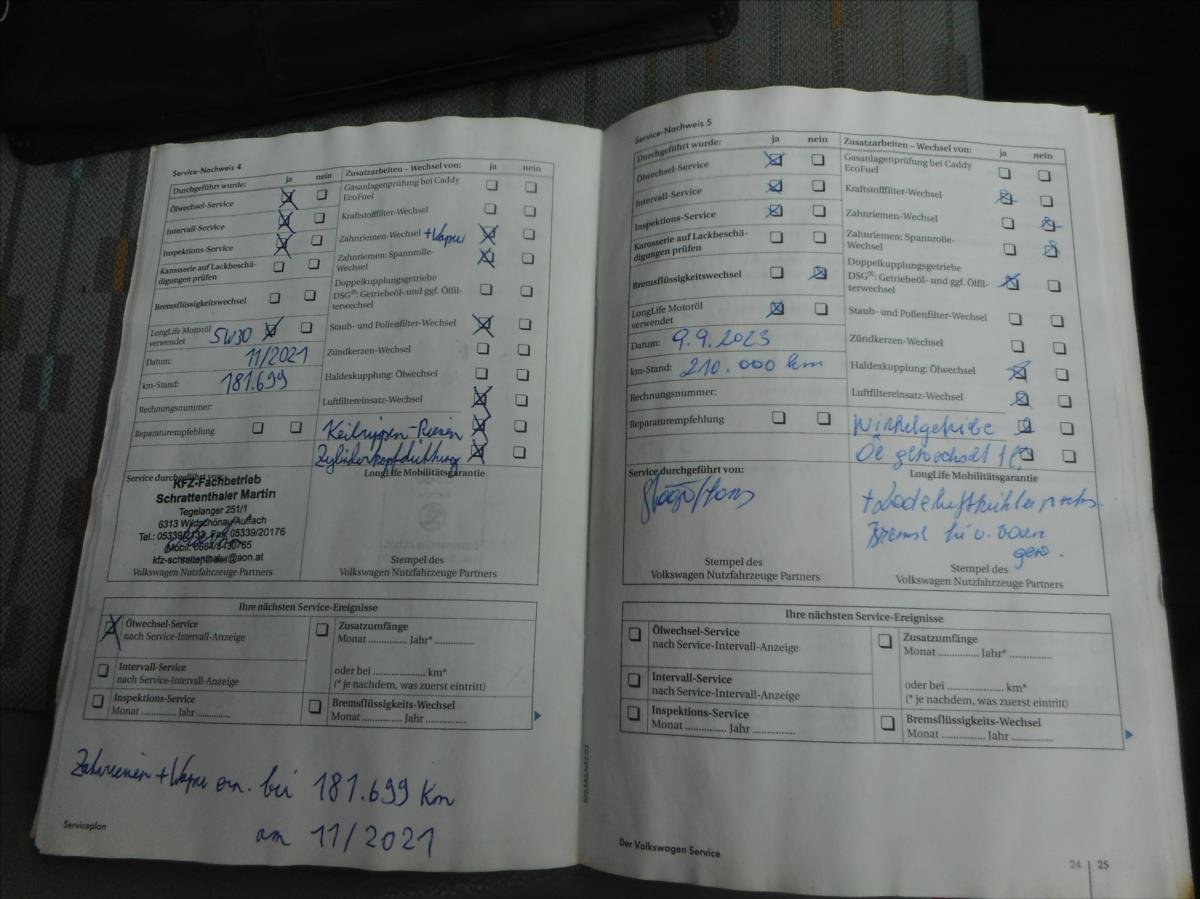 Service-Nachweis 4
Durchgeführt wurde: ja nein
Ölwechsel-Service
Intervall-Service
Inspektions-Service
Karosserie auf Lackbeschä-
digungen prüfen
Bremsflüssigkeitswechsel
LongLife Motoröl
verwendet 5W30
Datum: 11/2021
km-Stand: 181.699
Rechnungsnummer:
Reparaturempfehlung
Zusatzarbeiten – Wechsel von: ja nein
Gasanlagenprüfung bei Caddy
EcoFuel
Kraftstofffilter-Wechsel
Zahnriemen-Wechsel + Wapu
Zahnriemen: Spannrolle-
Wechsel
Doppelkupplungsgetriebe
DSG®: Getriebeöl- und ggf. Ölfil-
terwechsel
Staub- und Pollenfilter-Wechsel
Zündkerzen-Wechsel
Haldexkupplung: Ölwechsel
Luftfiltereinsatz-Wechsel
Keilrippen-Riemen
Zylinderkopfdichtung
Service durchgeführt von:
KFZ-Fachbetrieb
Schrattenthaler Martin
Tegelanger 251/1
6313 Wildschönau/Auffach
Fax. 05339/20176
kfz-schrattenthaler@aon.at
Volkswagen Nutzfahrzeuge Partners
LongLife Mobilitätsgarantie
Stempel des
Volkswagen Nutzfahrzeuge Partners
Ihre nächsten Service-Ereignisse
Ölwechsel-Service
nach Service-Intervall-Anzeige
Intervall-Service
nach Service-Intervall-Anzeige
Inspektions-Service
Monat ............ Jahr ............
Zusatzumfänge
Monat ............ Jahr* ............
oder bei .................. km*
(* je nachdem, was zuerst eintritt)
Bremsflüssigkeits-Wechsel
Monat ............ Jahr ............
Zahnriemen + Wapu ern. bei 181.699 Km
am 11/2021
Serviceplan
Service-Nachweis 5
Durchgeführt wurde: ja nein
Ölwechsel-Service
Intervall-Service
Inspektions-Service
Karosserie auf Lackbeschä-
digungen prüfen
Bremsflüssigkeitswechsel
LongLife Motoröl
verwendet
Datum: 9.9.2023
km-Stand: 210.000 km
Rechnungsnummer:
Reparaturempfehlung
Zusatzarbeiten – Wechsel von: ja nein
Gasanlagenprüfung bei Caddy
EcoFuel
Kraftstofffilter-Wechsel
Zahnriemen-Wechsel
Zahnriemen: Spannrolle-
Wechsel
Doppelkupplungsgetriebe
DSG®: Getriebeöl- und ggf. Ölfil-
terwechsel
Staub- und Pollenfilter-Wechsel
Zündkerzen-Wechsel
Haldexkupplung: Ölwechsel
Luftfiltereinsatz-Wechsel
Winkelgetriebe
Öl gewechselt
Service durchgeführt von:
Stempel des
Volkswagen Nutzfahrzeuge Partners
LongLife Mobilitätsgarantie
+ Ladeluftkühler
Brems hi u. vorn
gew.
Stempel des
Volkswagen Nutzfahrzeuge Partners
Ihre nächsten Service-Ereignisse
Ölwechsel-Service
nach Service-Intervall-Anzeige
Intervall-Service
nach Service-Intervall-Anzeige
Inspektions-Service
Monat ............ Jahr ............
Zusatzumfänge
Monat ............ Jahr* ............
oder bei .................. km*
(* je nachdem, was zuerst eintritt)
Bremsflüssigkeits-Wechsel
Monat ............ Jahr ............
Der Volkswagen Service
24 | 25